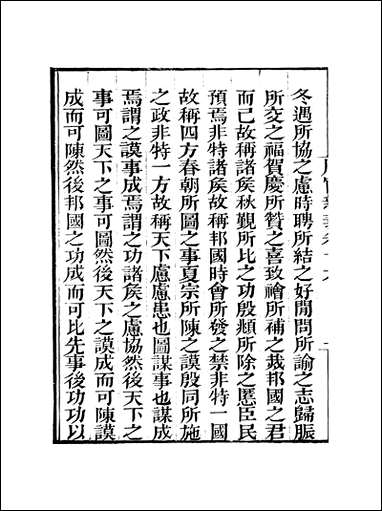 冬遇所協之慮時聘所結之好閒問所諭之志歸脤
所交之福賀慶所贊之喜致禬所補之烖邦國之君
而已故稱諸矦秋覲所比之功殷頫所除之慝臣民
預焉非特諸矦故稱邦國時會所發之禁非特一國
故稱四方春朝所圖之事夏宗所陳之謨殷同所施
之政非特一方故稱天下慮慮患也圖謀事也謀成
焉謂之謨事成焉謂之功諸矦之慮協然後天下之
事可圖天下之事可圖然後天下之謨成而可陳謨
成而可陳然後邦國之功成而可比先事後功功以